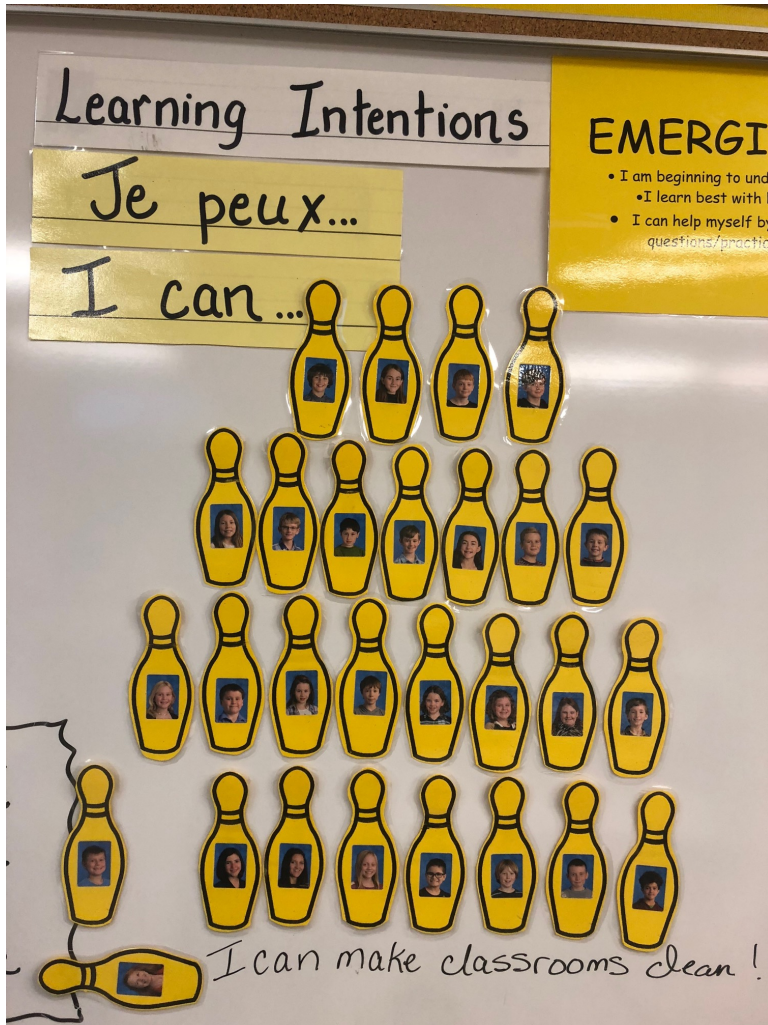 Learning Intentions
Je peux...
I can...
EMERGI
• I am beginning to und
•I learn best with
• I can help myself by
questions/practic
I can make classrooms clean!